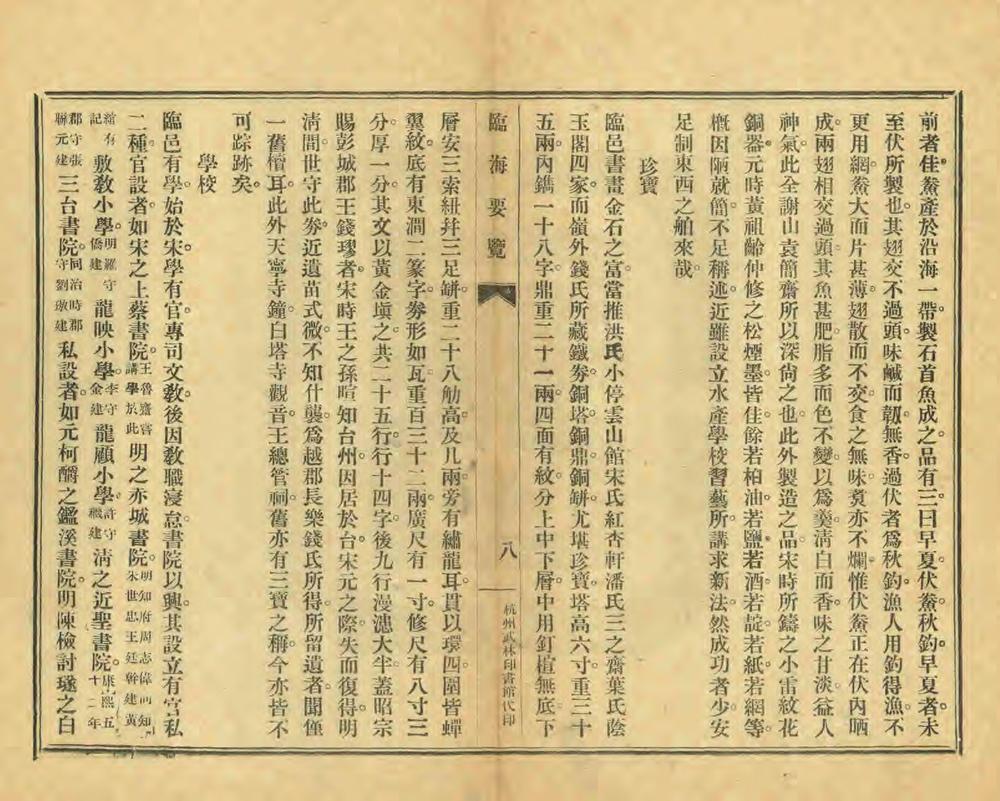 前者佳鯗產於沿海一帶製石首魚成之品有三曰早夏伏鯗秋鈞早夏者未
至伏所製也其翅交不過頭味鹹而韌無香過伏者爲秋鈞漁人用鈞得漁不
更用網鯗大而片甚薄翅散而不交食之無味煑亦不爛惟伏鯗正在伏內晒
成兩翅相交過頭其魚甚肥脂多而色不變以爲羹淸白而香味之甘淡益人
神氣此全謝山袁簡齋所以深尙之也此外製造之品宋時所鑄之小雷紋花
銅器元時黃祖齡仲修之松煙墨皆佳餘若柏油若鹽若酒若靛若紙若網等
槪因陋就簡不足稱述近雖設立水產學校習藝所講求新法然成功者少安
足制東西之舶來哉
珍寶
臨邑書畫金石之富當推洪氏小停雲山館宋氏紅杏軒潘氏三之齋葉氏蔭
玉閣四家而嶺外錢氏所藏鐵劵銅塔銅鼎銅缾尤堪珍寶塔高六寸重三十
五兩內鐫一十八字鼎重二十一兩四面有紋分上中下層中用釘楦無底下
臨海要覽
八
杭州武林印書館代印
層安三索紐幷三足缾重二十八觔高及几兩旁有繡龍耳貫以環四圍皆蟬
翼紋底有東澗二篆字劵形如瓦重百三十二兩廣尺有一寸修尺有八寸三
分厚一分其文以黃金塡之共二十五行行十四字後九行漫漶大半蓋昭宗
賜彭城郡王錢璆者宋時王之孫暄知台州因居於台宋元之際失而復得明
淸間世守此劵近遺苗式微不知什襲爲越郡長樂錢氏所得所留遺者聞僅
一舊檀耳此外天寧寺鐘白塔寺觀音王總管祠舊亦有三寶之稱今亦皆不
可踪跡矣
學校
臨邑有學始於宋學有官專司文敎後因敎職寖怠書院以興其設立有官私
二種官設者如宋之上蔡書院王魯齋嘗講學於此明之赤城書院明知府周志偉同知朱世忠王廷幹建黃
綰有記敷敎小學明羅守僑建龍映小學李守金建龍顧小學許守建淸之近聖書院康熙五十二年
郡守張聯元建三台書院同治時郡守劉璈建私設者如元柯酹之鑑溪書院明陳檢討璲之白